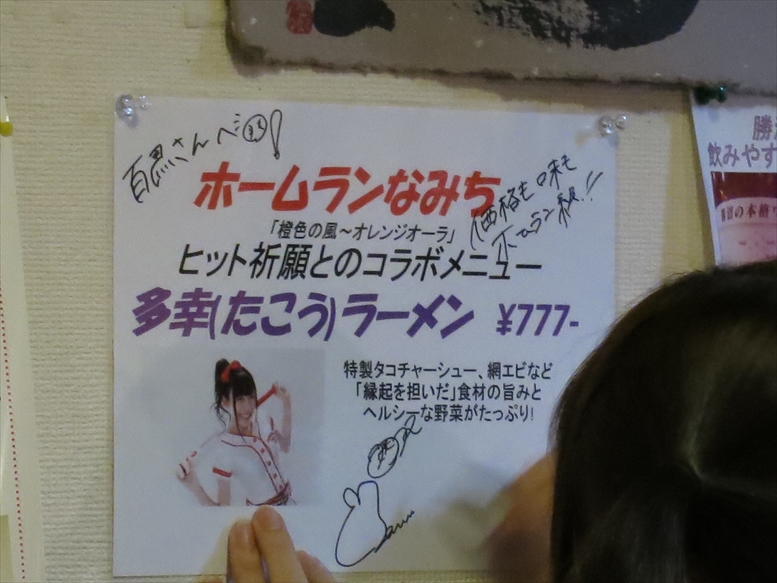 百黒さんへ
ホームランなみち
価格も味も
ホームラン級!!
「橙色の風～オレンジオーラ」
ヒット祈願とのコラボメニュー
多幸(たこう)ラーメン ¥777-
特製タコチャーシュー、網エビなど
「縁起を担いだ」食材の旨みと
ヘルシーな野菜がたっぷり!
飲みやす